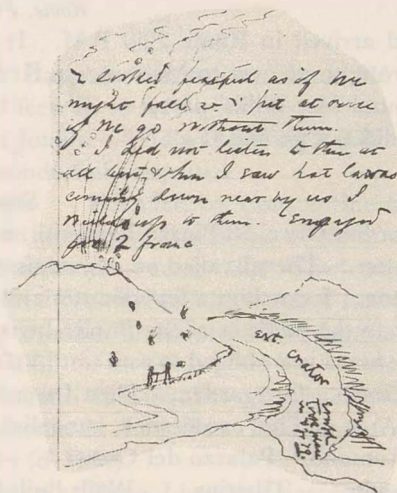 & looked fearful as if we
might fall in pit at once
if we go without them.
I did not listen to them at
all but when I saw hot lavas
coming down near by us I
to them. Engaged
for 2 franc
ext. crator